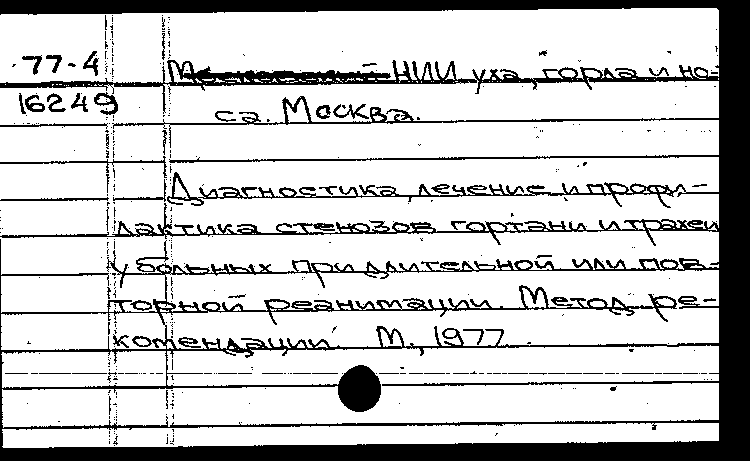 77-4
НИИ уха, горла и но-
16249
са. Москва.
Диагностика, лечение и профи-
лактика стенозов гортани и трахеи
у больных при длительной или пов-
торной реанимации. Метод. ре-
комендации. М., 1977